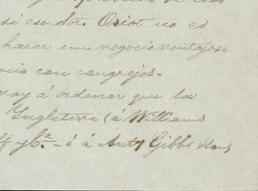 si ese dor. Oriol no es
hacer un negocio ventajoso
con cangrejos.
voy á ordenar que la
Inglaterra (á Williams
y Ca. - ó á Anty Gibbs Sons